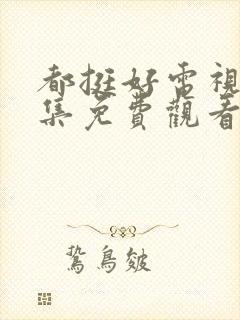 都挺好電視
集免費觀看
鷙鳥皴